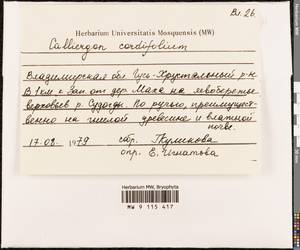 Вл. 26
Herbarium Universitatis Mosquensis (MW)
Calliergon cordifolium
Владимирская обл Гусь-Хрустальный р-н
В 1 км к Зап. от дер Маса на левобережье
верховьев р. Судогды. По ручью, преимущест-
венно на гнилой древесине и влажной
почве.
17.08.1979 сбр.
опр. Е. Игнатова
Herbarium MW, Bryophyta
MW 9 115 417